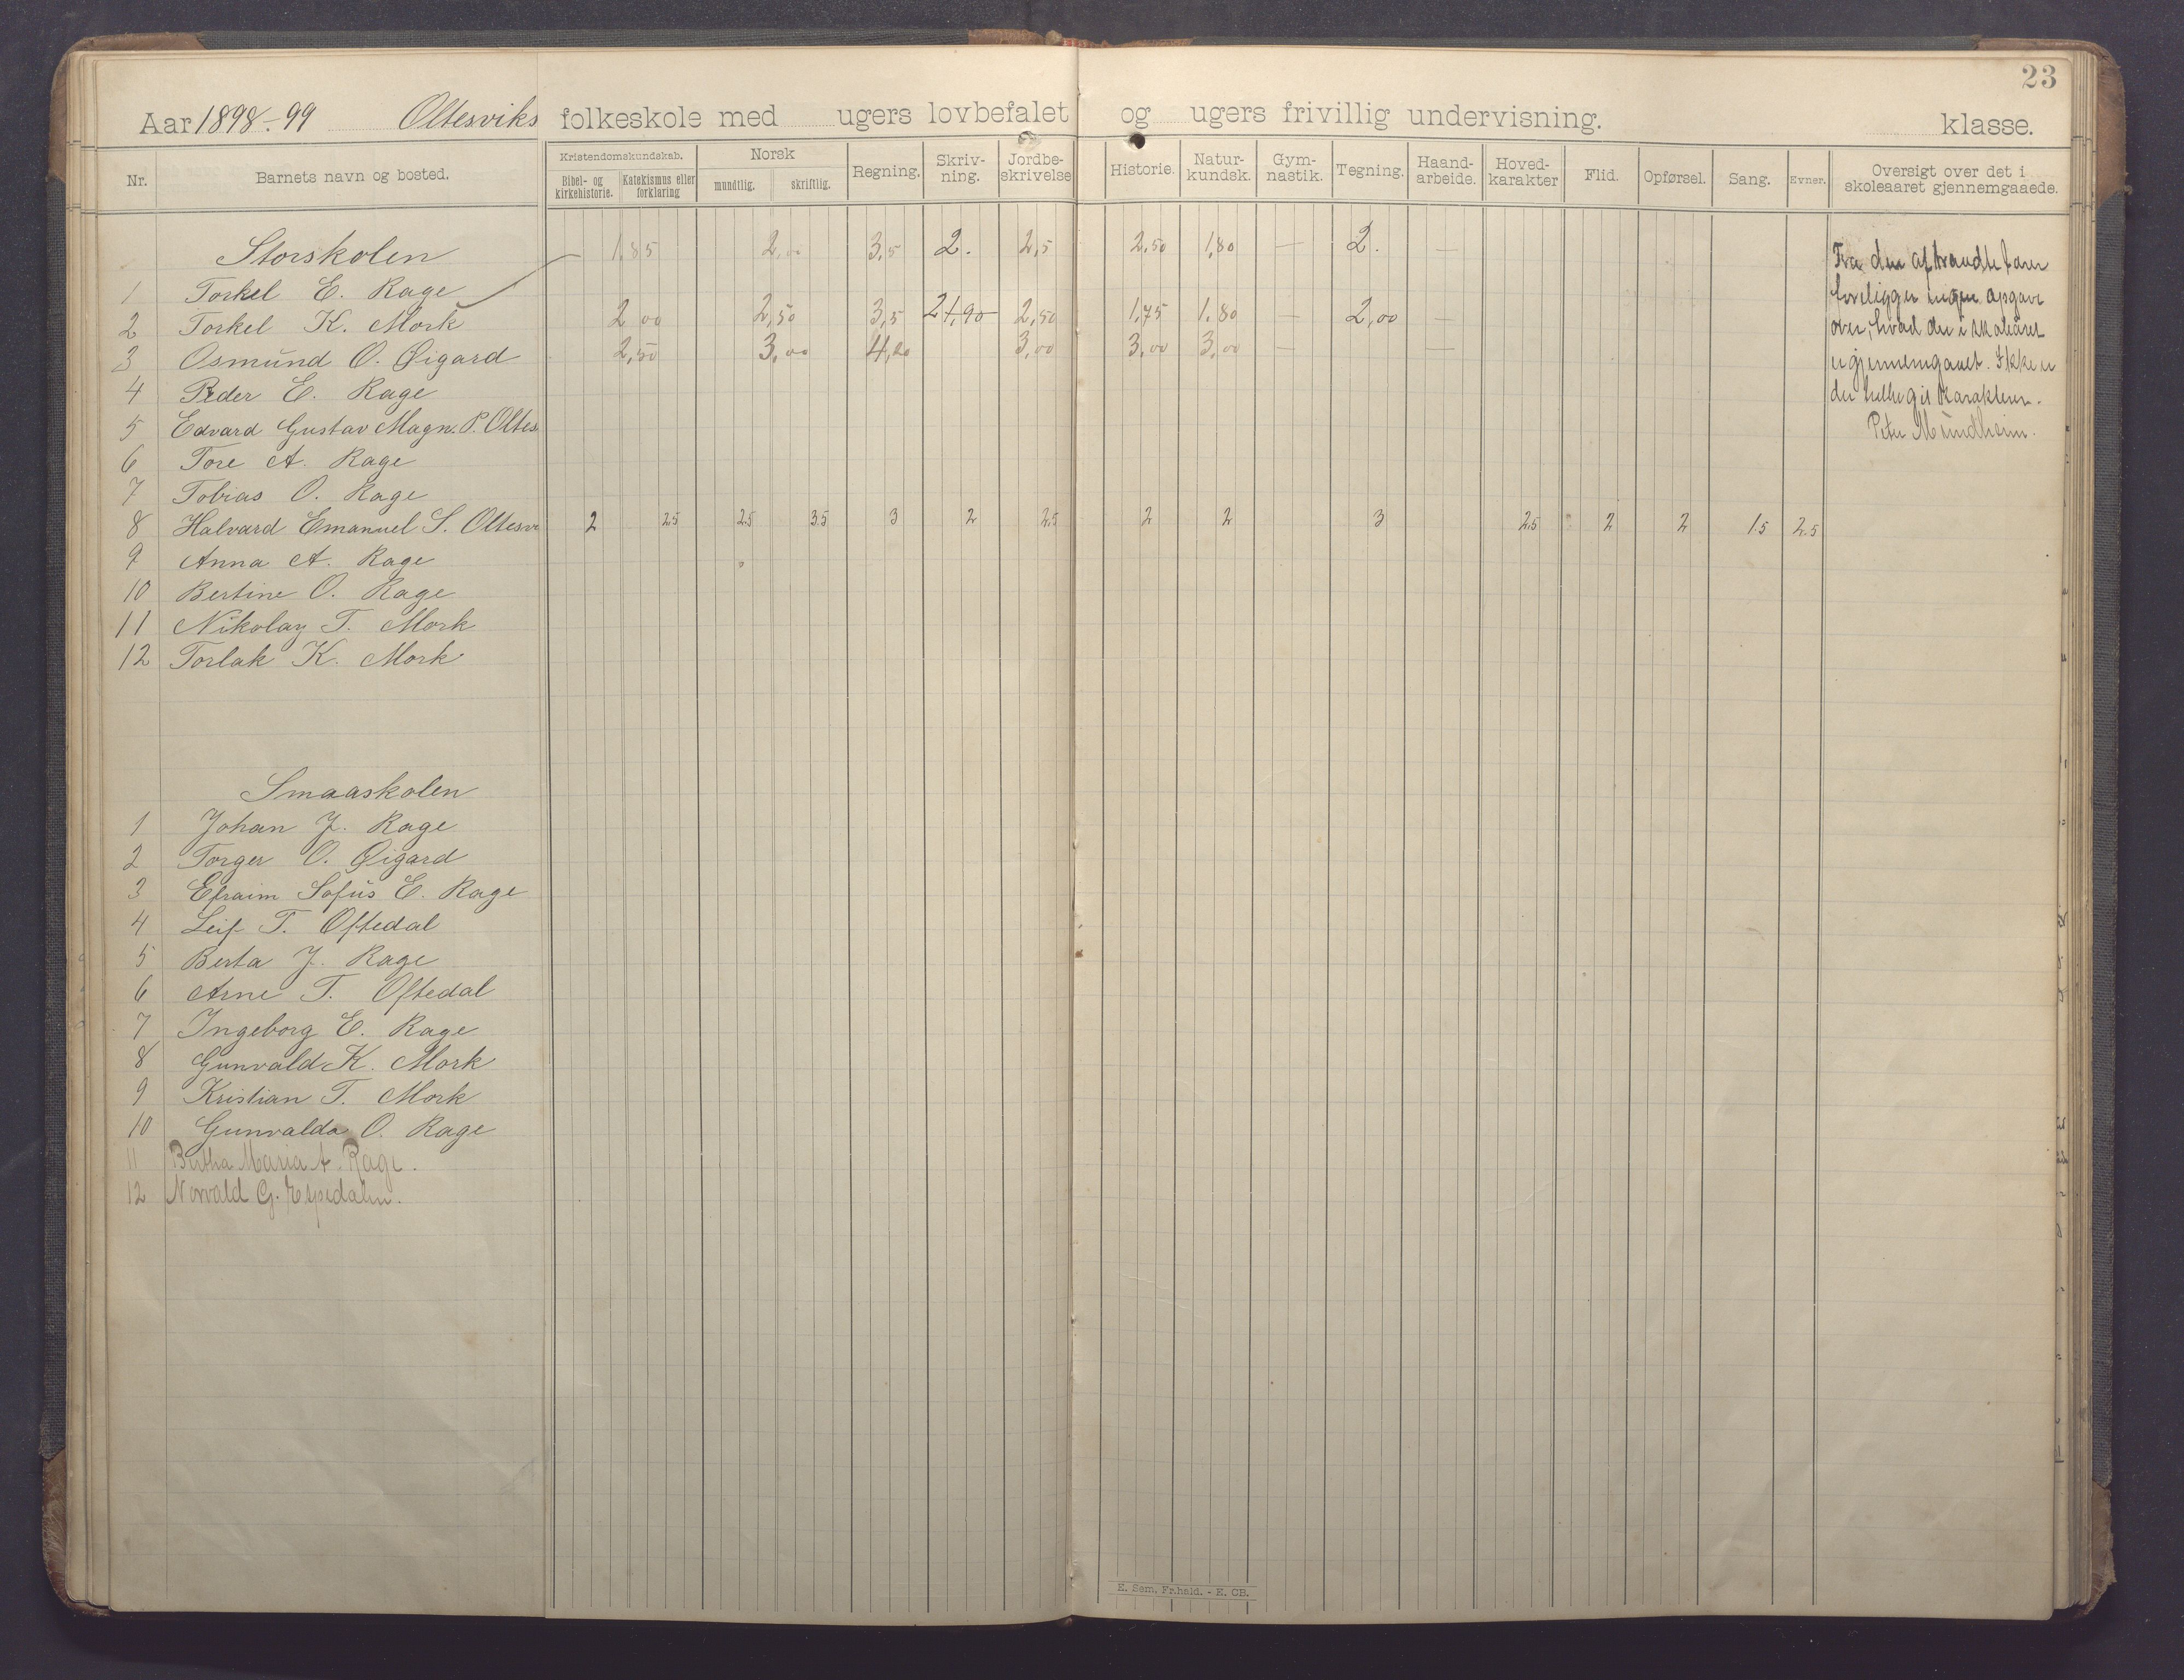 23
Aar 1898-99 Oltesviks folkeskole med ugers lovbefalet og ugers frivillig undervisning. klasse.
Nr. Barnets navn og bosted. Kristendomskundskab. Bibel- og kirkehistorie. Katekismus eller forklaring Norsk mundtlig. skriftlig. Regning. Skriv-ning. Jordbe-skrivelse Historie. Natur-kundsk. Gym-nastik. Tegning. Haand-arbeide. Hoved-karakter Flid. Opførsel. Sang. Evner. Oversigt over det i skoleaaret gjennemgaaede.
Storskolen
1 Torkel E. Rage 1,85 2,00 3,5 2. 2,5 2,50 1,80 — 2. —
2 Torkel K. Mork 2,00 2,50 3,5 2 1,90 2,50 1,75 1,80 — 2,00 —
3 Osmund O. Øigard 2,50 3,00 4,00 3,00 3,00 3,00 — —
4 Peder E. Rage
5 Edvard Gustav Magn. P. Oltes
6 Tore A. Rage
7 Tobias O. Rage
8 Halvard Emanuel S. Oltesv 2 2.5 2.5 3.5 3 2 2.5 2 2 3 2.5 2 2 1.5 2.5
9 Anna A. Rage
10 Bertine O. Rage
11 Nikolay T. Mork
12 Torlak K. Mork
Fra den afbrændte
foreligger ingen opgave
over, hvad der i skoleåret
er gjennemgaaet. Ikke er
der heller git karakterer.
Peter Mundheim.
Smaaskolen
1 Johan J. Rage
2 Torger O. Øigard
3 Efraim Sofus E. Rage
4 Leif T. Oftedal
5 Berta J. Rage
6 Arne T. Oftedal
7 Ingeborg E. Rage
8 Gunvald K. Mork
9 Kristian T. Mork
10 Gunvalda O. Rage
11 Bertha Maria A. Rage.
12 Norvald G. Espedalen.
E. Sem, Fr.hald. - E. CB.